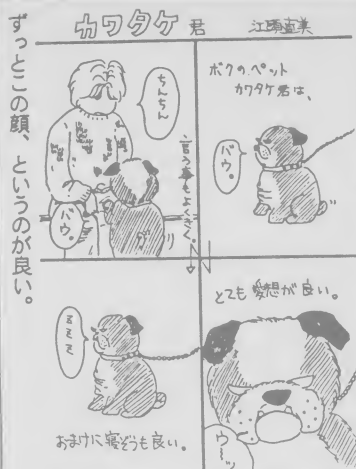 カワタケ君
ボクのペット
カワタケ君は、
バウ。
ちんちん
バウ。
言う事もよくきく。
とても愛想が良い。
ウ〜ッ
ZZZ
おまけに寝ぞうも良い。
ずっとこの顔、というのが良い。